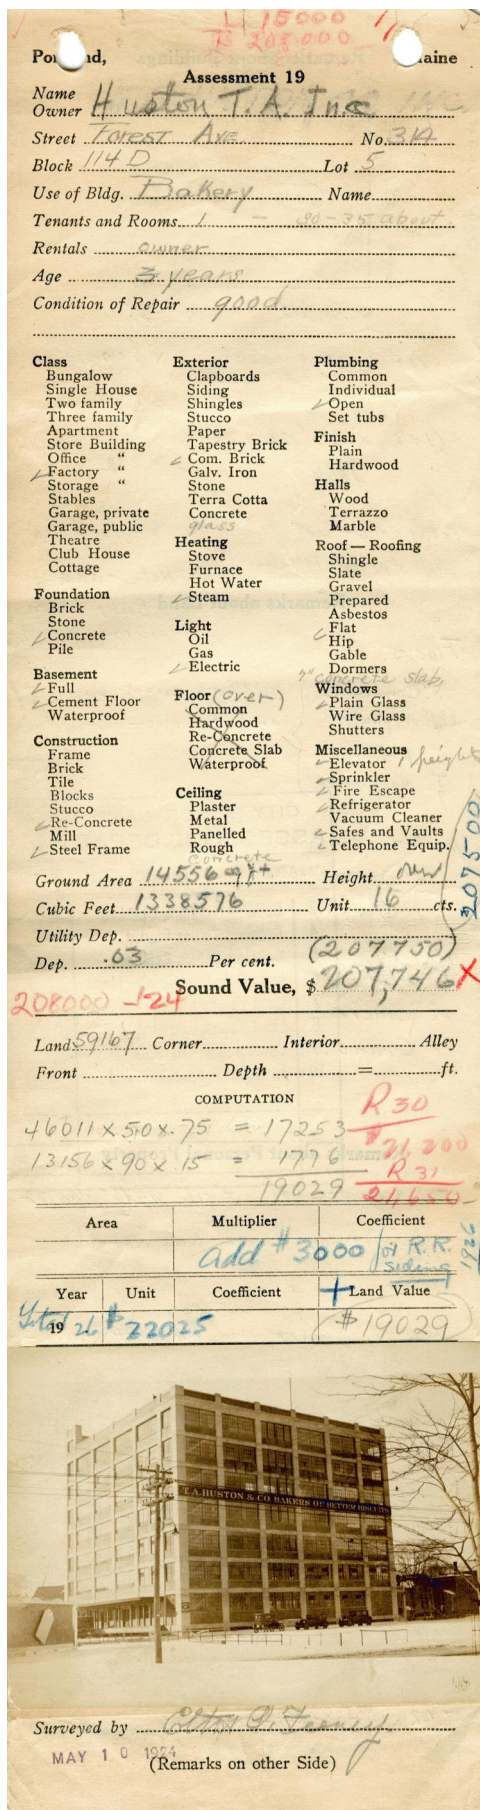 L 15000
B 208000
Portland, Maine
Assessment 19
Name
Owner Huston T. A. Inc
Street Forest Ave. No. 314
Block 114 D Lot 5
Use of Bldg. Bakery Name
Tenants and Rooms 1 - 30-35 about.
Rentals owner
Age 3 years
Condition of Repair good.
Class
Bungalow
Single House
Two family
Three family
Apartment
Store Building
Office "
✓ Factory "
Storage "
Stables
Garage, private
Garage, public
Theatre
Club House
Cottage
Foundation
Brick
Stone
✓ Concrete
Pile
Basement
✓ Full
✓ Cement Floor
Waterproof
Construction
Frame
Brick
Tile
Blocks
Stucco
✓ Re-Concrete
Mill
✓ Steel Frame
Exterior
Clapboards
Siding
Shingles
Stucco
Paper
Tapestry Brick
✓ Com. Brick
Galv. Iron
Stone
Terra Cotta
Concrete
glass
Heating
Stove
Furnace
Hot Water
✓ Steam
Light
Oil
Gas
✓ Electric
Floor (over)
Common
Hardwood
Re-Concrete
Concrete Slab
Waterproof
Ceiling
Plaster
Metal
Panelled
Rough
Concrete
Plumbing
Common
Individual
✓ Open
Set tubs
Finish
Plain
Hardwood
Halls
Wood
Terrazzo
Marble
Roof — Roofing
Shingle
Slate
Gravel
Prepared
Asbestos
✓ Flat
Hip
Gable
Dormers
7" concrete slab,
Windows
✓ Plain Glass
Wire Glass
Shutters
Miscellaneous
✓ Elevator 1 freight
✓ Sprinkler
✓ Fire Escape
✓ Refrigerator
Vacuum Cleaner
✓ Safes and Vaults
✓ Telephone Equip.
207500
Ground Area 14556 sq ft Height over
Cubic Feet 1338576 Unit 16 cts.
Utility Dep.
(207750)
Dep. .03 Per cent.
Sound Value, $ 207,746 X
208000 -'24
Land 59167 Corner Interior Alley
Front Depth = ft.
COMPUTATION
R 30
46011 x 50 x .75 = 17253
$ 21200
13156 x 90 x .15 = 1776
R 31
19029
21,650
Area Multiplier Coefficient
add $3000 for R.R. siding 1926
Year Unit Coefficient + Land Value
Total
19 26 $ 22025 $19029
T. A. HUSTON & CO. BAKERS OF BETTER BISCUITS
Surveyed by
MAY 10 1924
(Remarks on other Side)